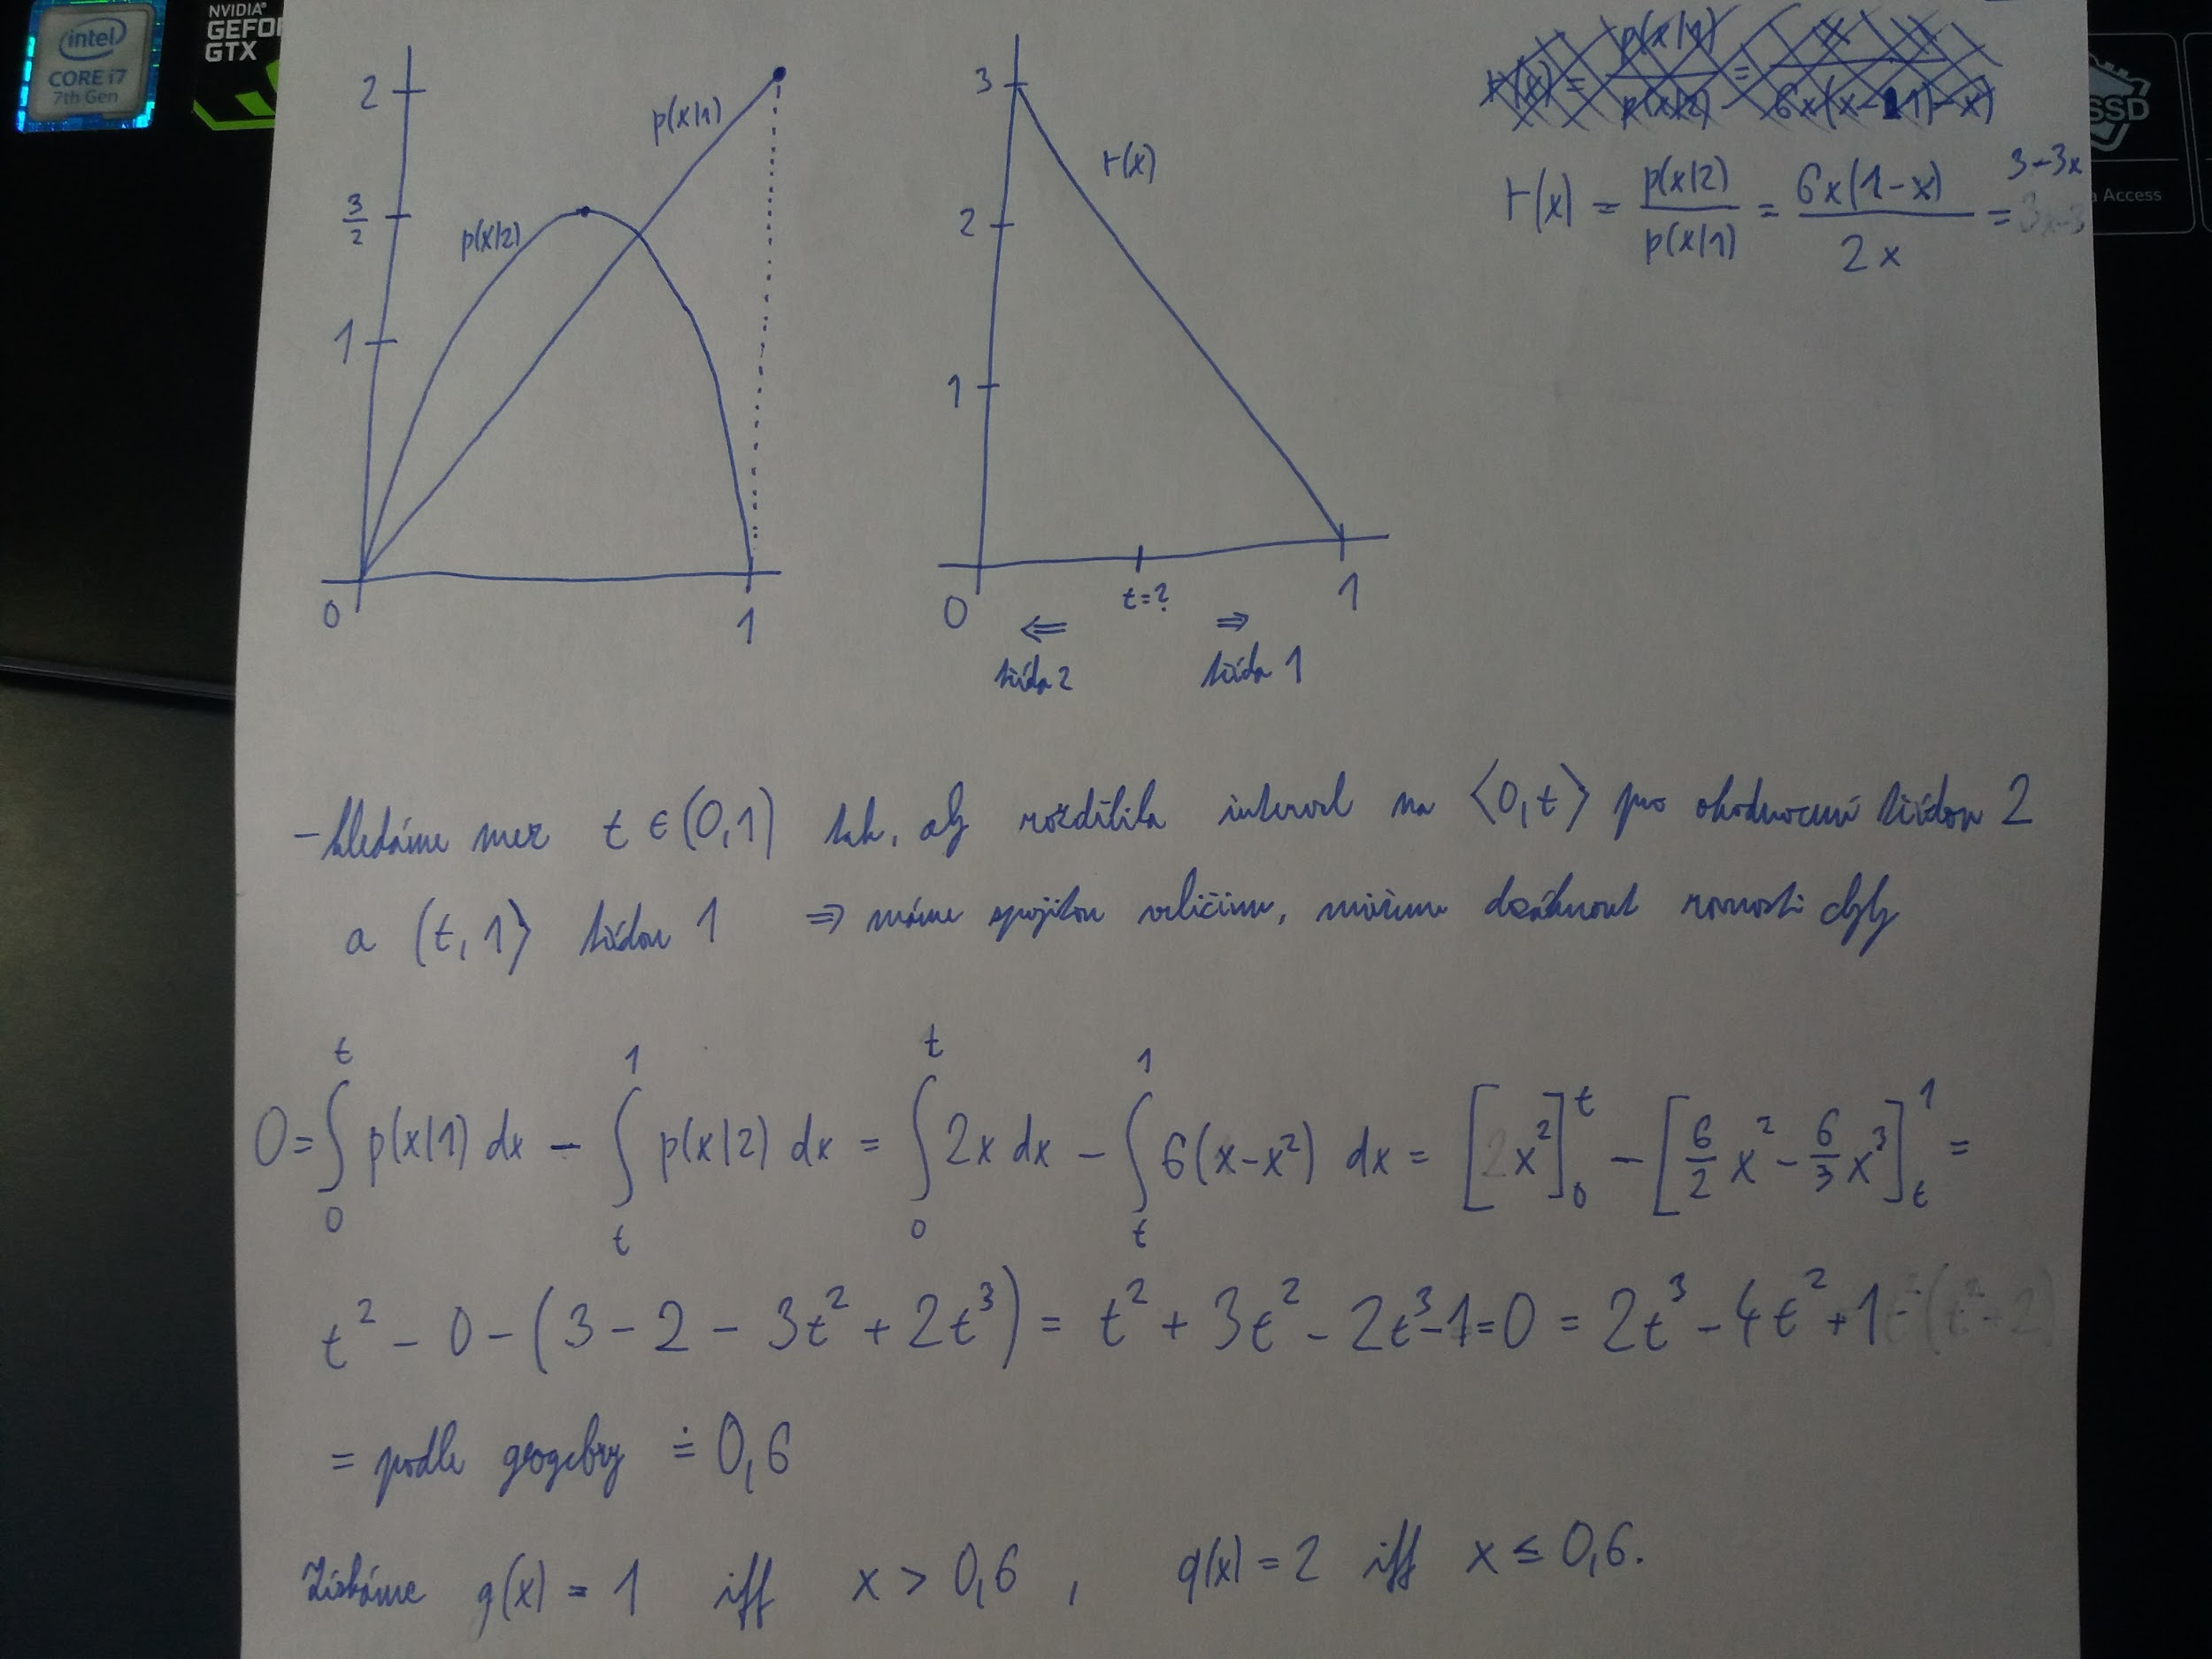 intel
CORE i7
7th Gen
NVIDIA
GEFO
GTX
SSD
a Access
2
3/2
1
0
1
p(x|1)
p(x|2)
3
2
1
0
t=?
1
r(x)
⇐ ⇒
třída 2 třída 1
r(x) = p(x|2)/p(x|1) = 6x(1-x)/2x = 3-3x
- hledáme mez t ∈ (0,1) tak, aby rozdělila interval na ⟨0,t⟩ pro ohodnocení třídou 2
a (t,1⟩ třídou 1 ⇒ máme spojitou veličinu, můžeme dosáhnout rovnosti chyby
0 = ∫₀ᵗ p(x|1) dx - ∫ₜ¹ p(x|2) dx = ∫₀ᵗ 2x dx - ∫ₜ¹ 6(x-x²) dx = [x²]₀ᵗ - [6/2 x² - 6/3 x³]ₜ¹ =
t² - 0 - (3 - 2 - 3t² + 2t³) = t² + 3t² - 2t³ - 1 = 0 = 2t³ - 4t² + 1
= podle geogebry ≐ 0,6
Získáme q(x) = 1 iff x > 0,6 , q(x) = 2 iff x ≤ 0,6.